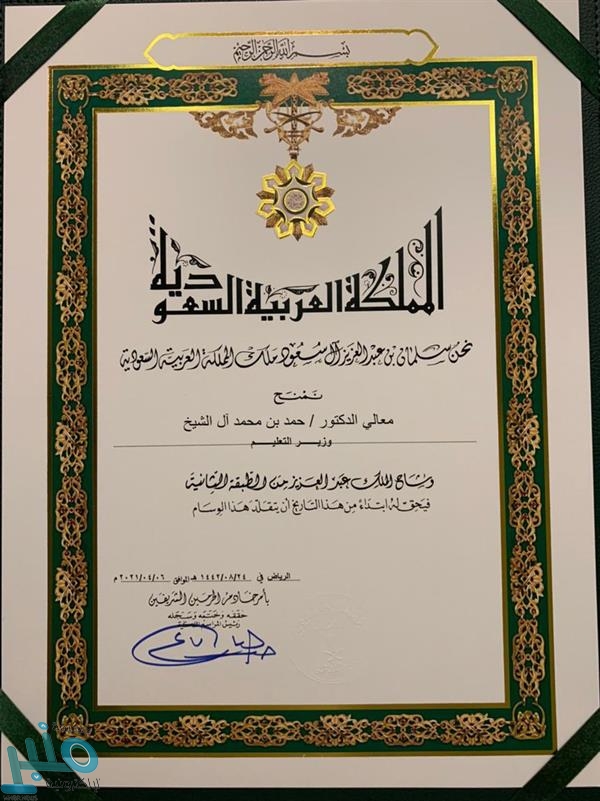 بسم الله الرحمن الرحيم
المملكة العربية السعودية
نحن سلمان بن عبد العزيز آل سعود ملك المملكة العربية السعودية
نمنح
معالي الدكتور / حمد بن محمد آل الشيخ
وزير التعليم
وشاح الملك عبد العزيز من الطبقة الثانية
فيحق له ابتداءً من هذا التاريخ أن يتقلد هذا الوسام
الرياض في ١٤٤٢/٠٨/٢٤ هـ الموافق ٢٠٢١/٠٤/٠٦ م
بأمر خادم الحرمين الشريفين
حققه وختمه وسجله
رئيس المراسم الملكية
منبر
إلكترونية